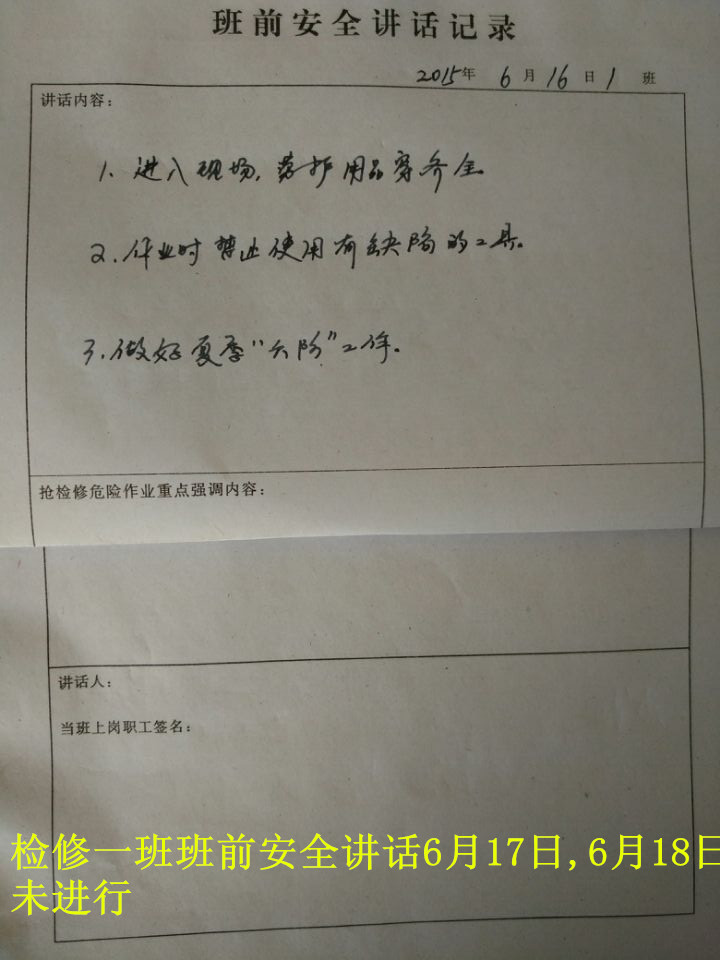 班前安全讲话记录
2015年 6月16日1班
讲话内容：
1. 进入现场，劳护用品穿齐全
2. 作业时禁止使用有缺陷的工具。
3. 做好夏季“六防”工作。
抢检修危险作业重点强调内容：
讲话人：
当班上岗职工签名：
检修一班班前安全讲话6月17日,6月18日
未进行